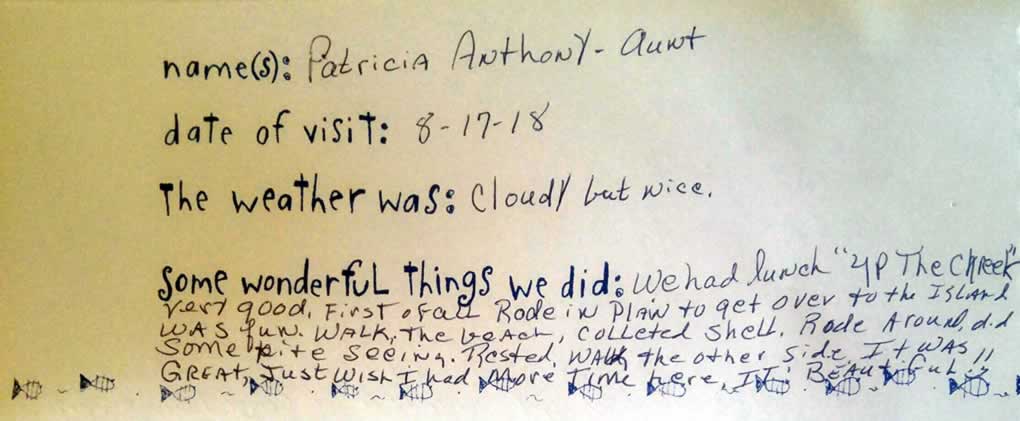 name(s): Patricia Anthony - aunt
date of visit: 8-17-18
The weather was: Cloudy but nice.
Some wonderful things we did: We had lunch "up The Chreek"
very good. First of all Rode in Plaw to get over to the Island
was fun. Walk, The beach, colleted shell. Rode Around, did
Some site seeing. Rested, Walk the other side. It was
GREAT, Just wish I had More Time here, IT: BEAUTiful !!